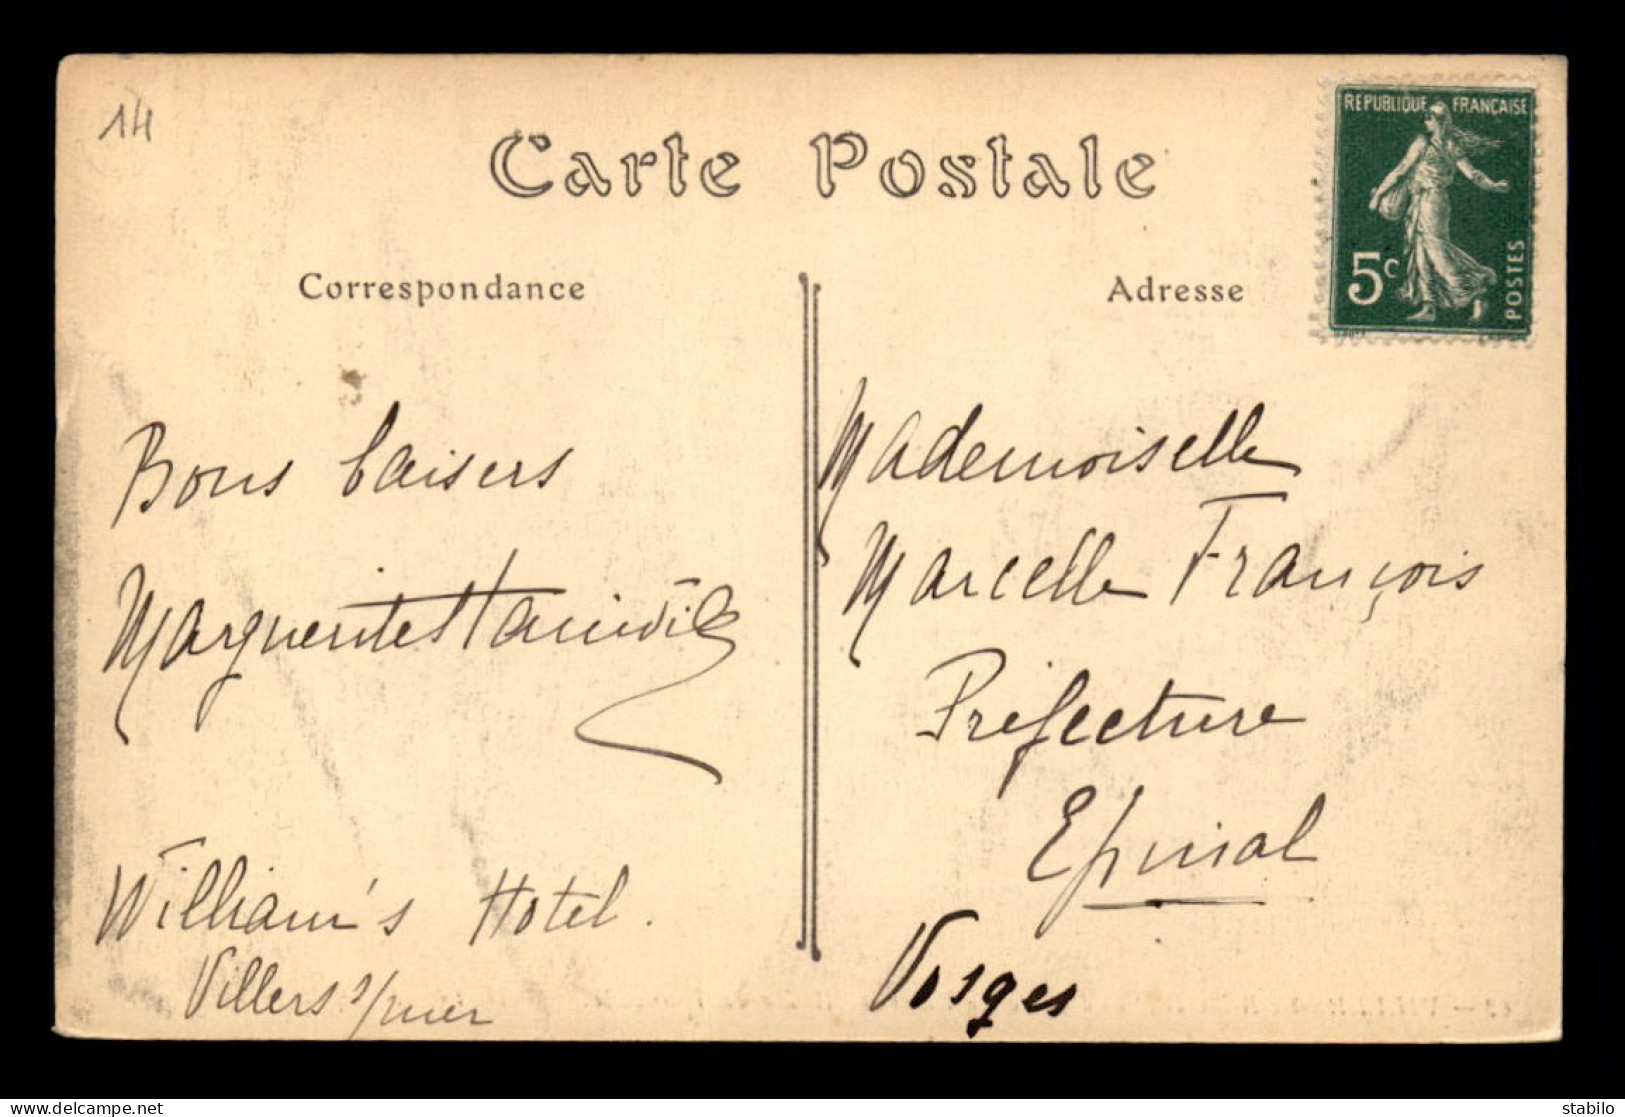 14
Carte Postale
REPUBLIQUE FRANÇAISE
5c
POSTES
Correspondance
Adresse
Bons baisers
Marguerite
William's Hotel.
Villers s/mer
Mademoiselle
Marcelle François
Préfecture
Epinal
Vosges
stabilo